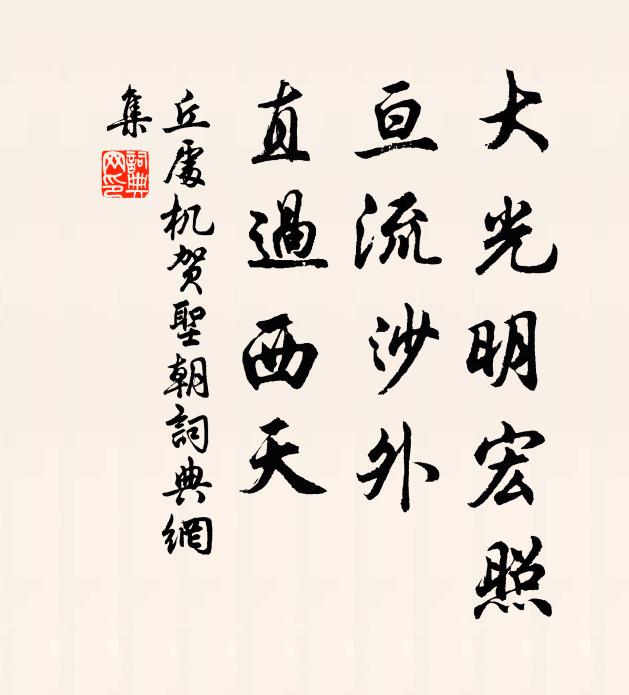 大光明宏照
亘流沙外
直過西天
丘處机贺聖朝詞典網
集
詞典网印